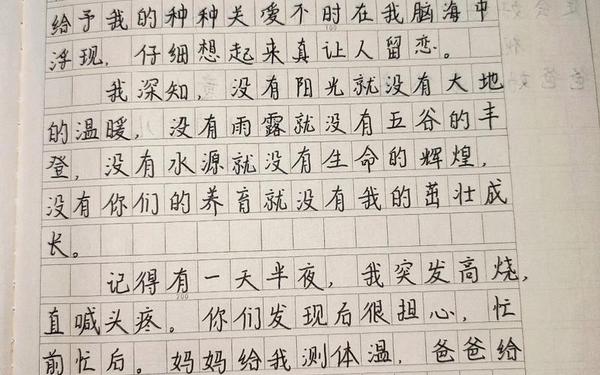 给予我的种种关爱不时在我脑海中
浮现，仔细想起来真让人留恋。
我深知，没有阳光就没有大地
的温暖，没有雨露就没有五谷的丰
登，没有水源就没有生命的辉煌，
没有你们的养育就没有我的茁壮成
长。
记得有一天半夜，我突发高烧，
直喊头疼。你们发现后很担心，忙
前忙后。妈妈给我测体温，爸爸给